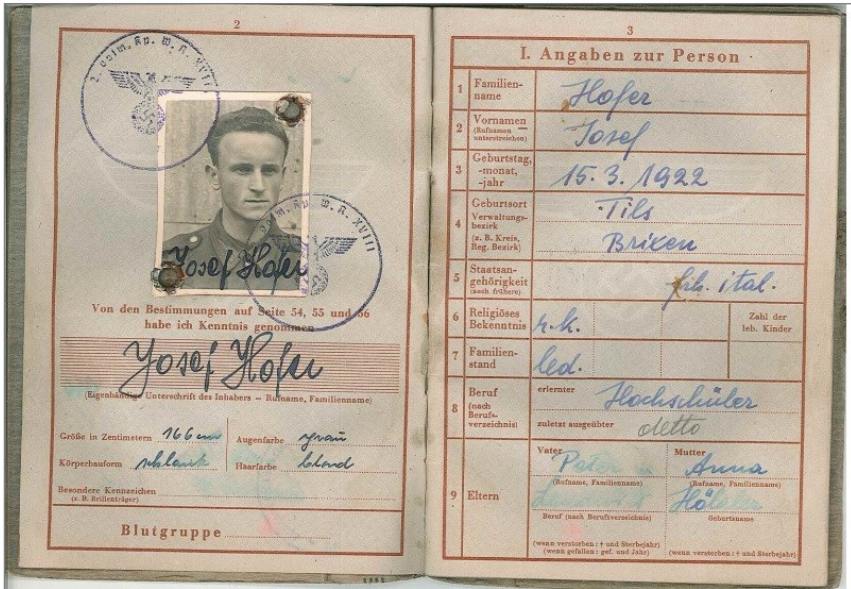 2
2. Dolm. Kp. W. K. XVIII
Dolm. Kp. W. K. XVIII
Josef Hofer
Von den Bestimmungen auf Seite 54, 55 und 56
habe ich Kenntnis genommen
Josef Hofer
(Eigenhändige Unterschrift des Inhabers — Rufname, Familienname)
Größe in Zentimetern 166 cm
Augenfarbe grau
Körperbauform schlank
Haarfarbe blond
Besondere Kennzeichen
(z. B. Brillenträger)
Blutgruppe
3
I. Angaben zur Person
1 Familien-
name
Hofer
2 Vornamen
(Rufnamen
unterstreichen)
Josef
3 Geburtstag,
-monat,
-jahr
15. 3. 1922
4 Geburtsort
Verwaltungs-
bezirk
(z. B. Kreis,
Reg. Bezirk)
Tils
Brixen
5 Staatsan-
gehörigkeit
(auch frühere)
frh. ital.
6 Religiöses
Bekenntnis
r. k.
Zahl der
leb. Kinder
7 Familien-
stand
led.
8 Beruf
(nach
Berufs-
verzeichnis)
erlernter Hochschüler
zuletzt ausgeübter detto
9 Eltern
Vater
Mutter
Anna
(Rufname, Familienname)
(Rufname, Familienname)
Beruf (nach Berufsverzeichnis)
Geburtsname
(wenn verstorben: † und Sterbejahr)
(wenn gefallen: gef. und Jahr)
(wenn verstorben: † und Sterbejahr)